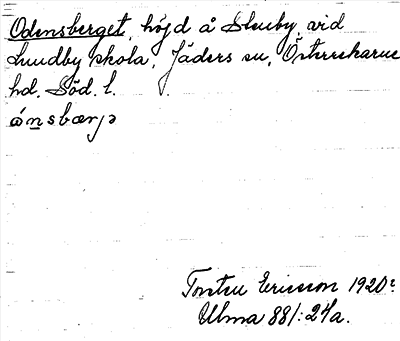 Odensberget, höjd å Sluby vid
Lundby skola, Jäders sn, Österrekarne
hd. Söd. l.
ónsbærjə
Torsten Ericsson 1920?
Ulma 881:24a.